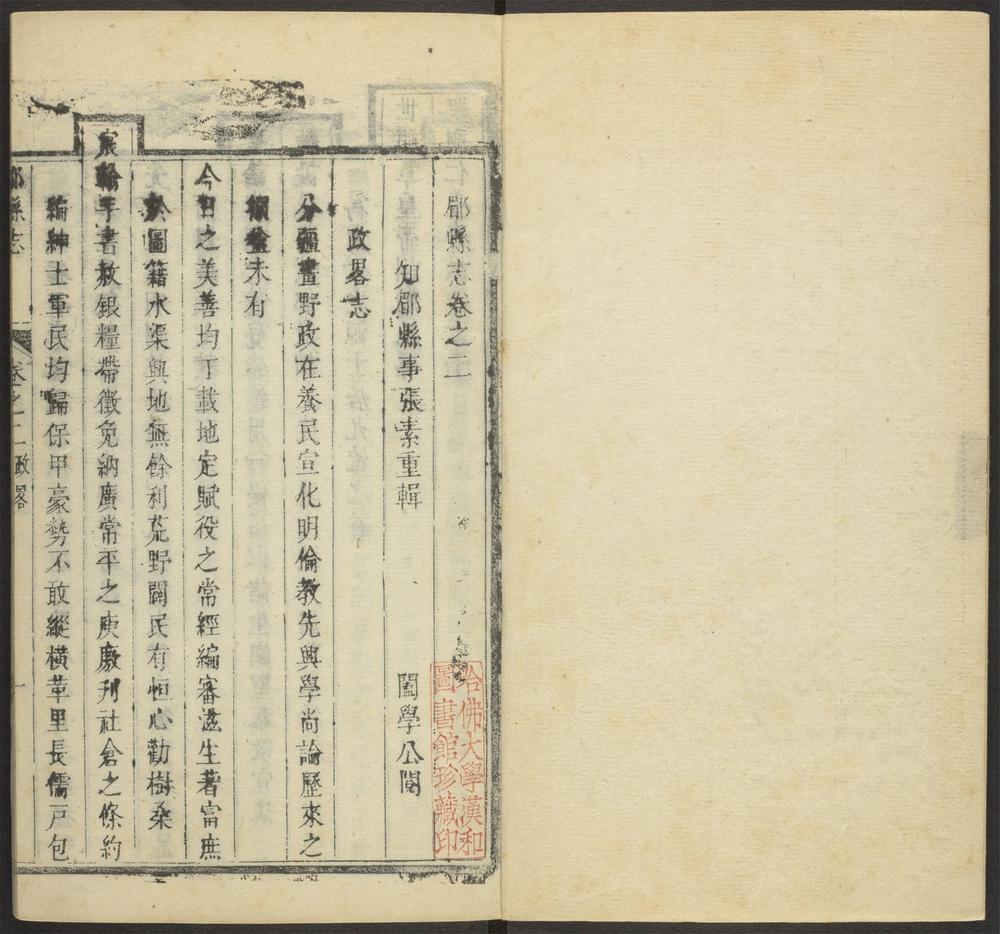 郿縣志卷之二
知郿縣事張素重輯　闔學公閱
政畧志
分疆畫野政在養民宣化明倫敎先興學尚論歷來之
未有
今日之美善均丁載地定賦役之常經編審滋生著富庶
於圖籍水渠興地無餘利荒野闢民有恒心勸樹桑
宸翰手書赦銀糧帶徵免納廣常平之庾廒刋社倉之條約
綸紳士軍民均歸保甲豪勢不敢縱横革里長儒戸包
縣志　卷之二政畧　一
哈佛大學漢和
圖書館珍藏印